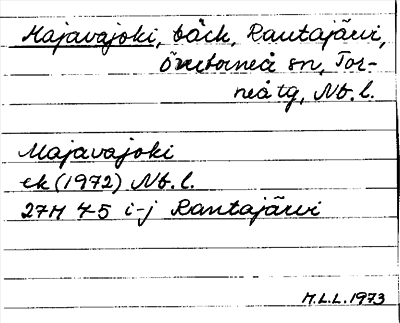 Majavajoki, bäck, Rautajärvi,
Övertorneå sn, Tor-
neå tg, Nb. l.
Majavajoki
ek (1972) Nb. l.
27M 4-5 i-j Rautajärvi
H.L.L. 1973